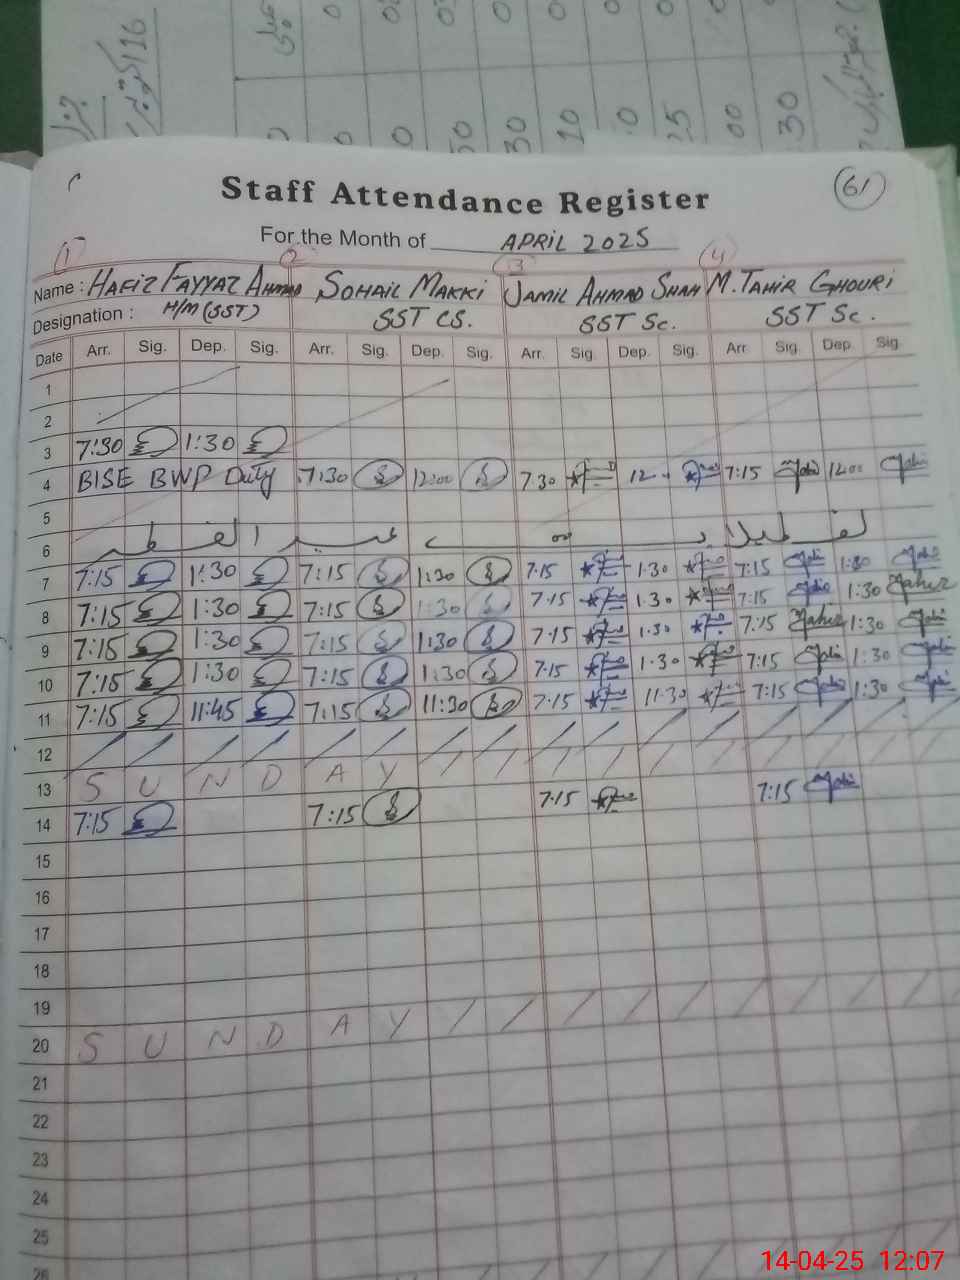 116
30 10 25 00 30
61
Staff Attendance Register
For the Month of APRIL 2025
1 2 3 4
Name : HAFIZ FAYYAZ AHMAD SOHAIL MAKKI JAMIL AHMAD SHAH M. TAHIR GHOURI
Designation : H/M (SST) SST CS. SST Sc. SST Sc.
Date Arr. Sig. Dep. Sig. Arr. Sig. Dep. Sig. Arr. Sig. Dep. Sig. Arr. Sig. Dep. Sig.
1
2
3 7:30 1:30
4 BISE BWP Duty 7:30 12:00 7:30 12 7:15 12:00
5
6 عید الفطر
7 7:15 1:30 7:15 1:30 7:15 1:30 7:15 1:30
8 7:15 1:30 7:15 1:30 7:15 1:30 7:15 1:30
9 7:15 1:30 7:15 1:30 7:15 1:30 7:15 1:30
10 7:15 1:30 7:15 1:30 7:15 1:30 7:15 1:30
11 7:15 11:45 7:15 11:30 7:15 11:30 7:15 1:30
12
13 S U N D A Y
14 7:15 7:15 7:15 7:15
15
16
17
18
19
20 S U N D A Y
21
22
23
24
25
26
14-04-25 12:07